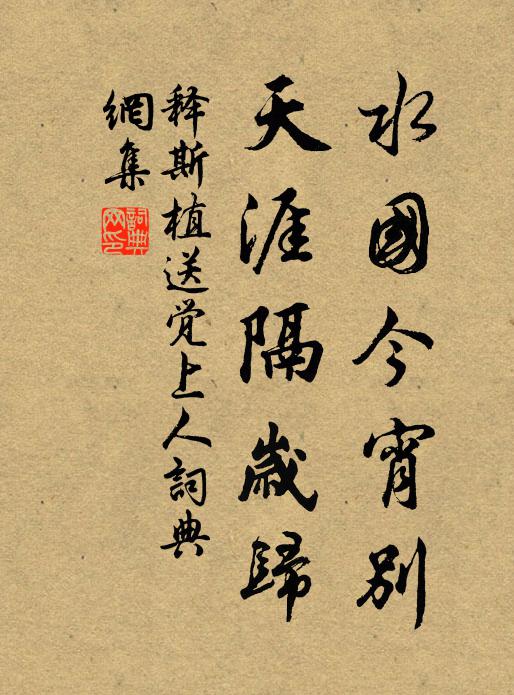 水國今宵別
天涯隔歲歸
释斯植送觉上人詞典
網集
詞典網印